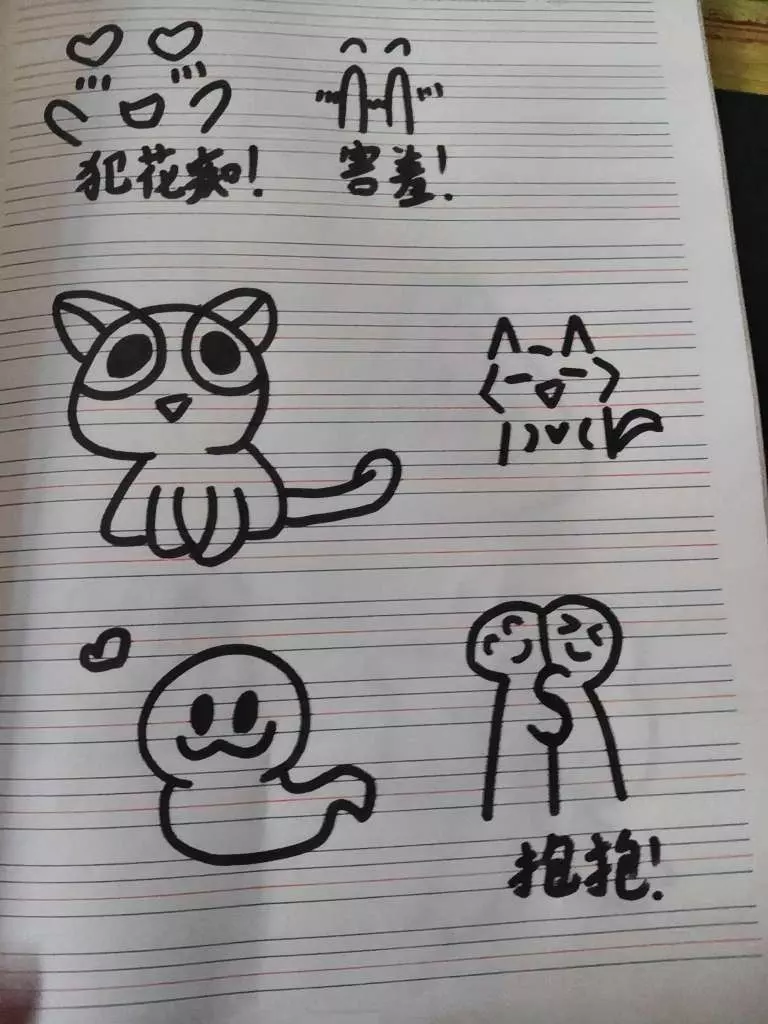 犯花痴!
害羞!
抱抱!